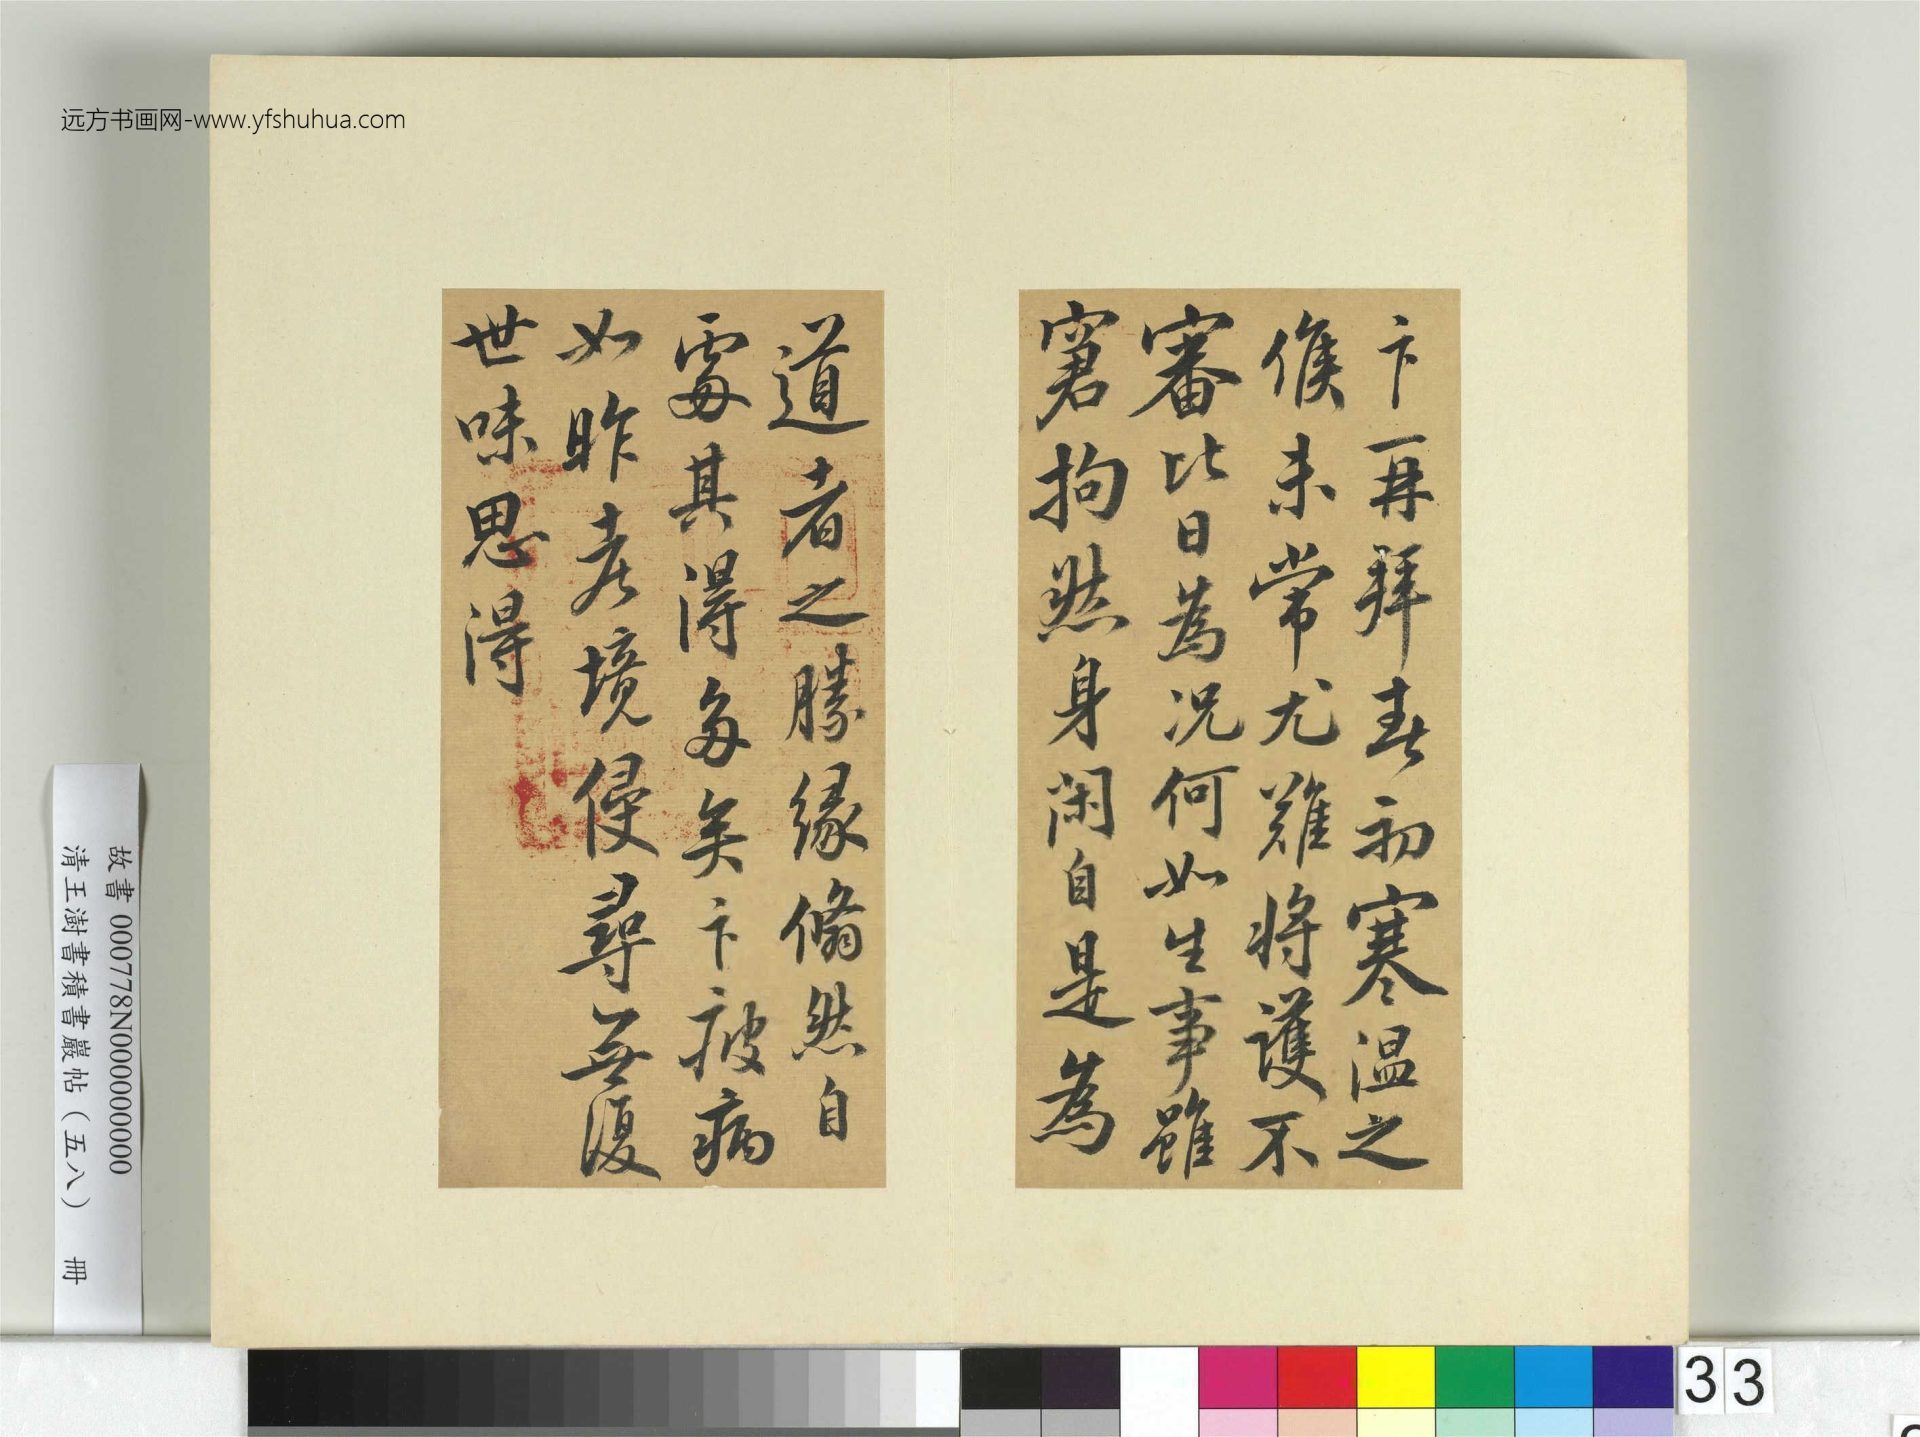 远方书画网-www.yfshuhua.com
卞再拜春初寒温之
候未常尤難將護不
審比日為況何如生事雖
窘拘然身閑自是為
道者之勝緣翛然自
處其得多矣卞疲病
如昨老境侵尋無復
世味思得
故書 000778N000000000
清王澍書積書巖帖(五八) 冊
33